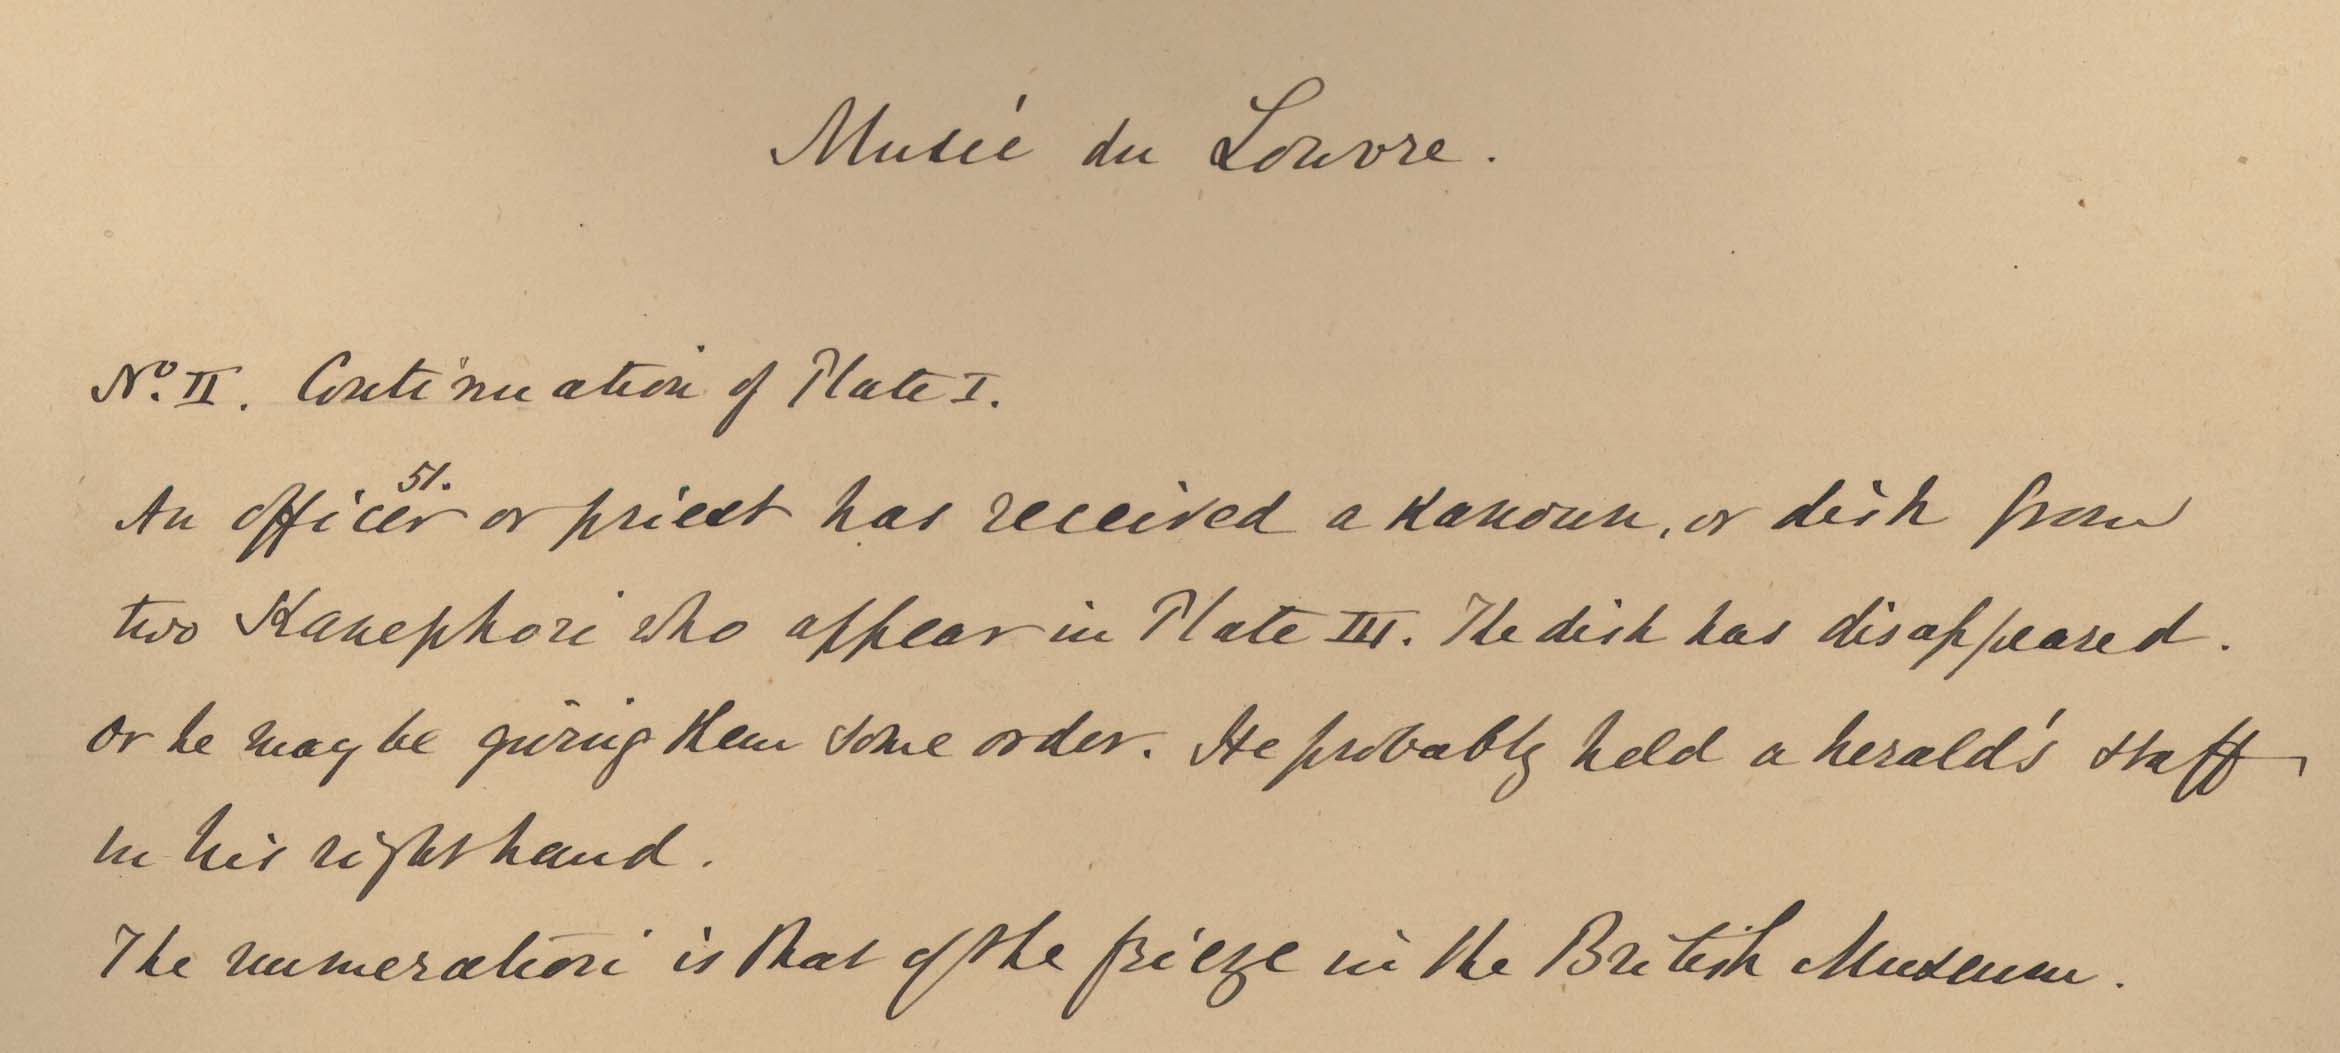 Musée du Louvre.
No. II. Continuation of Plate I.
51.
An officer or priest has received a Kanoun, or dish from
two Kanephori who appear in Plate III. The dish has disappeared.
or he may be giving them some order. He probably held a herald's staff
in his right hand.
The numeration is that of the frieze in the British Museum.